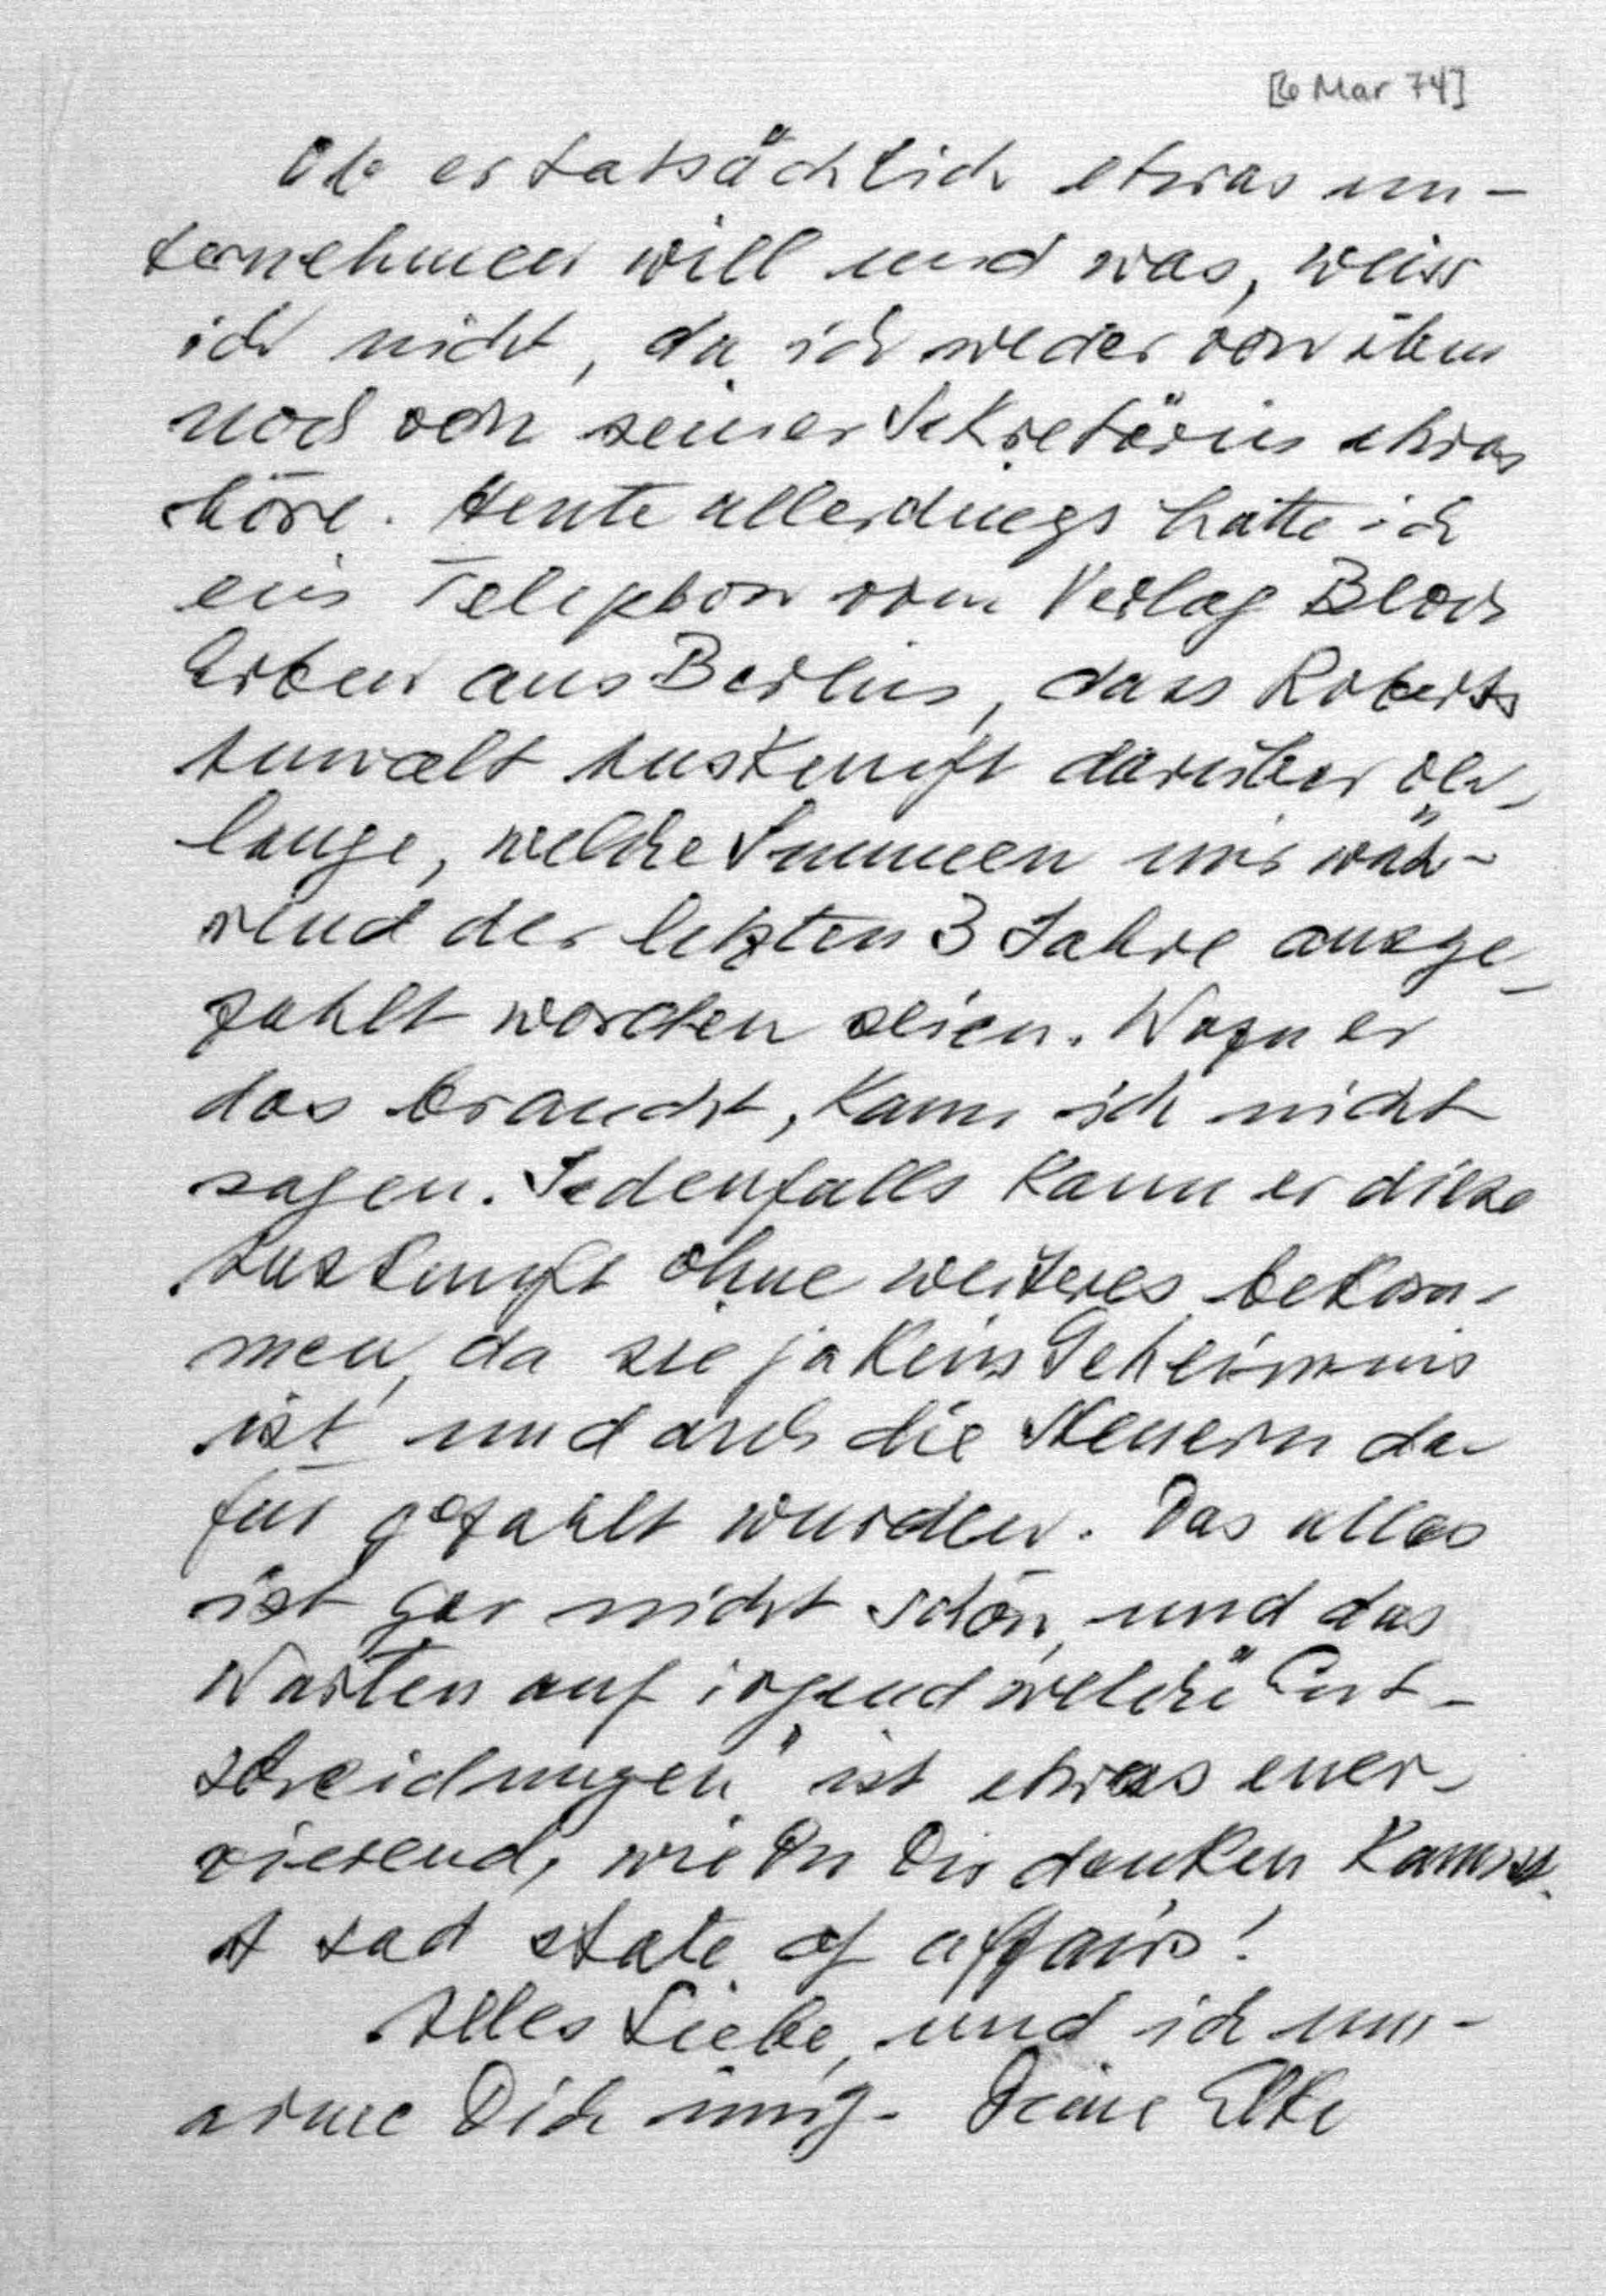 [6 Mar 74]
Ob er tatsächlich etwas un-
ternehmen will und was, weiss
ich nicht, da ich weder von ihm
noch von seiner Sekretärin etwas
höre. Heute allerdings hatte ich
ein Telephon vom Verlag Bloch
Erben aus Berlin, dass Roberts
Anwalt Auskunft darüber ver-
lange, welche Summen mir wäh-
rend der letzten 3 Jahre ausge-
zahlt worden seien. Wozu er
das braucht, kann ich nicht
sagen. Jedenfalls kann er diese
Auskunft ohne weiteres bekom-
men, da sie ja kein Geheimnis
ist und auch die Steuern da-
für gezahlt wurden. Das alles
ist gar nicht schön, und das
Warten auf irgendwelche "Ent-
scheidungen" ist etwas ener-
vierend, wie Du Dir denken kannst.
A sad state of affairs!
Alles Liebe, und ich um-
arme Dich innig - Deine Elke